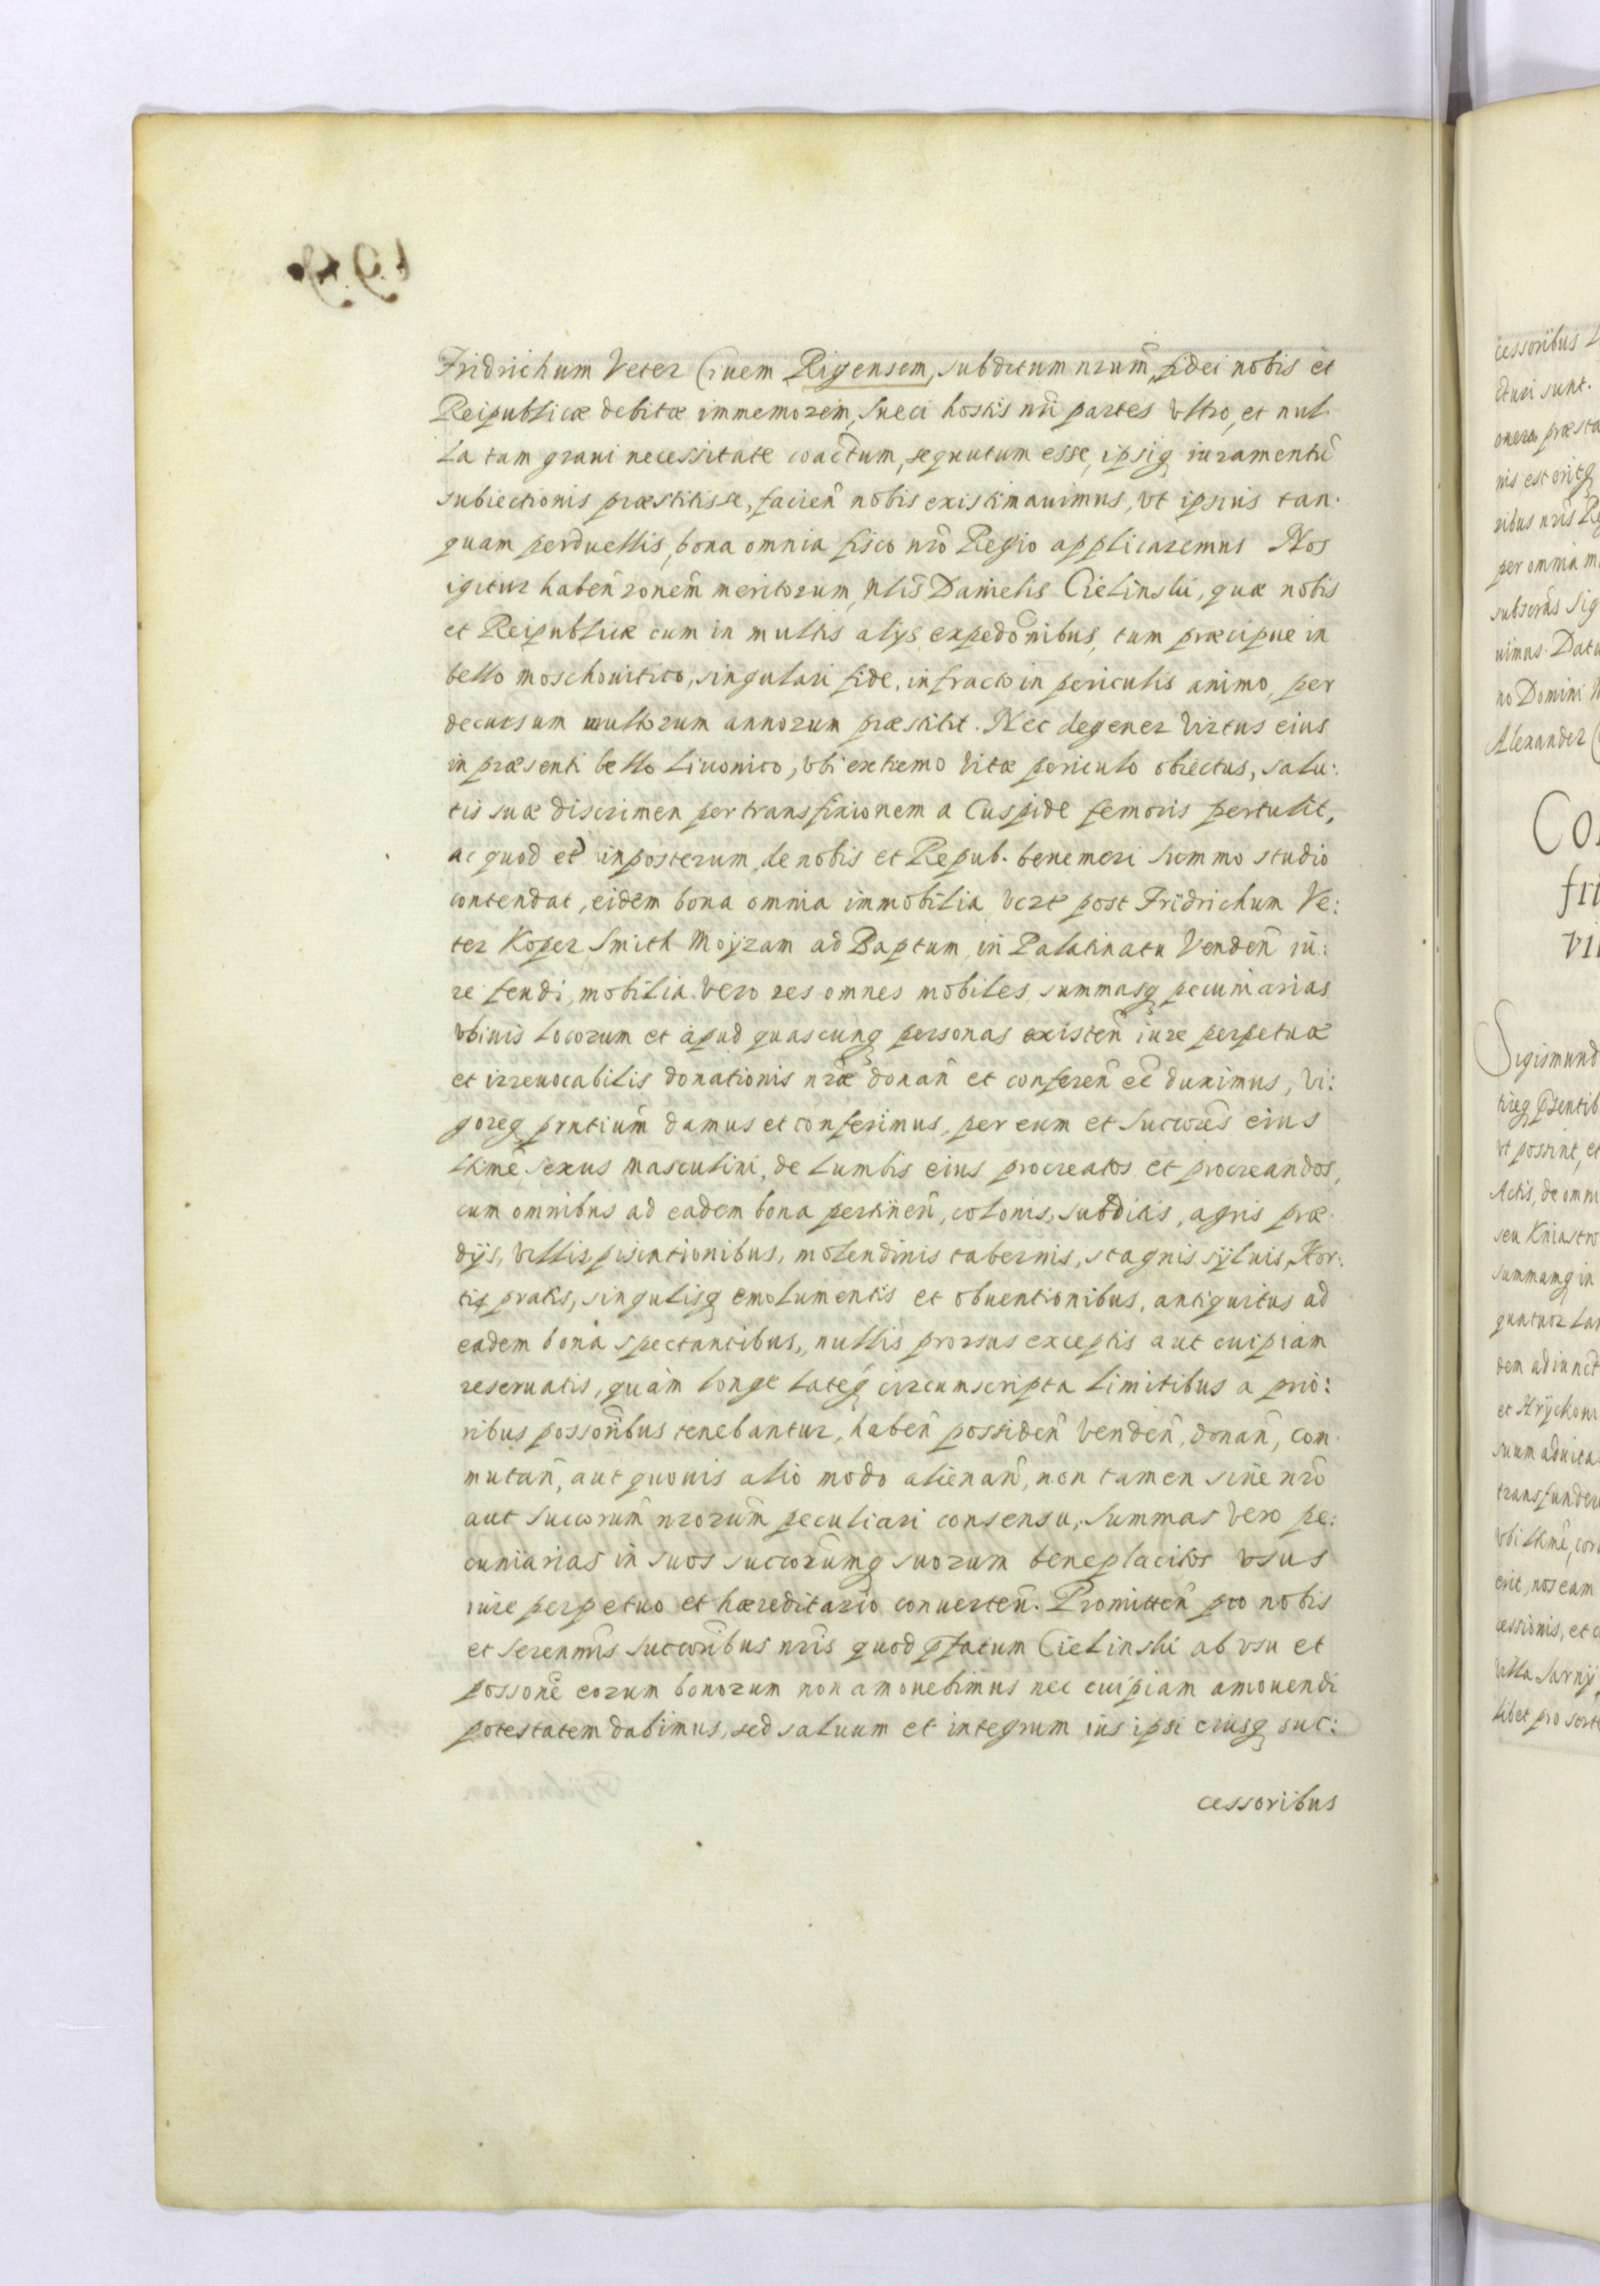 Fridrichum Veter Ciuem Rigensem, subditum nrum̃, fidei nobis et
Reipublicæ debitæ immemorem, Sueci hostis nri̅ partes vltro, et nul-
la tam graui necessitate coactum, sequutum esse, ipsiq̃ iuramentũ
subiectionis præstitisse, facien̄ nobis existimauimus, vt ipsius tan-
quam perduellis, bona omnia fisco nrō Regio applicaremus Nos
igitur haben̄ ronem̄ meritorum, Nlis̄ Danielis Cielinski, quæ nobis
et Reipublicæ cum in multis alijs expedōnibus, tum præcipue in
bello moschouitico, singulari fide, infracto in periculis animo, per
decursum multorum annorum præstitit. Nec degener virtus eius
in præsenti bello Liuonico, vbi extremo vitæ periculo obiectus, salu:
tis suæ discrimen per transfixionem a Cuspide femoris pertulit,
ac quod et inposterum de nobis et Repub. benemeri summo studio
contendat, eidem bona omnia immobilia vczt post Fridrichum Ve:
ter Koper Smith Moyzam ad Baptum, in Palatinatu Venden̄ iu:
re feudi, mobilia vero res omnes mobiles, summasq̃ pecuniarias
vbiuis locorum et apud quascunq̃ personas existen̄ iure perpetuæ
et irreuocabilis donationis nrǣ donan̄ et conferen̄ eē duximus, vi:
goreq̃ pn̄tium̄ damus et conferimus, per eum et Succōres̄ eius
ltīme sexus masculini, de lumbis eius procreatos et procreandos,
cum omnibus ad eadem bona pertinen̄, colonis, subditis, agris præ-
dijs, villis, piscationibus, molendinis tabernis, stagnis syluis, Hor:
tis pratis, singulisq̃ emolumentis et obuentionibus, antiquitus ad
eadem bona spectantibus, nullis prorsus exceptis aut cuipiam
reseruatis, quàm longe lateq̃ circumscripta limitibus a prio:
ribus possoribus̄ tenebantur, haben̄ possiden̄ venden̄, donan̄, com
mutan̄, aut quouis alio modo alienan̄, non tamen sine nrō
aut succorum̄ nrorum̄ peculiari consensu, Summas vero pe:
cuniarias in suos succorum̄q̃ suorum beneplacitos vsus
iure perpetuo et hæreditario conuerten̄. Promitten̄ pro nobis
et serenmis̄ succoribus̄ nris̄ quod p̄fatum Cielinski ab vsu et
possonē eorum bonorum non amouebimus nec cuipiam amouendi
potestatem dabimus, sed saluum et integrum ius ipsi eiusq̃ suc:
cessoribus